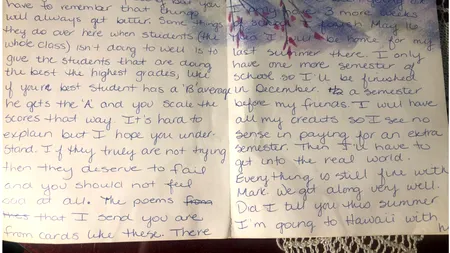 have to remember that things
will always get better. Some things
they do over here when students (the
whole class) isn't doing to well is to
give the students that are doing
the best the highest grades, like
if your best student has a 'B' average
he gets the 'A' and you scale the
scores that way. It's hard to
explain but I hope you under-
stand. If they truly are not trying
then they deserve to fail
and you should not feel
bad at all. The poems from
that I send you are
from cards like these. There
3 more weeks
May 16
I'll be home for my
last summer there. I only
have one more semester of
school so I'll be finished
in December. a semester
before my friends. I will have
all my credits so I see no
sense in paying for an extra
semester. Then I'll have to
get into the real world.
Everything is still fine with
Mark. We get along very well.
Did I tell you this summer
I'm going to Hawaii with